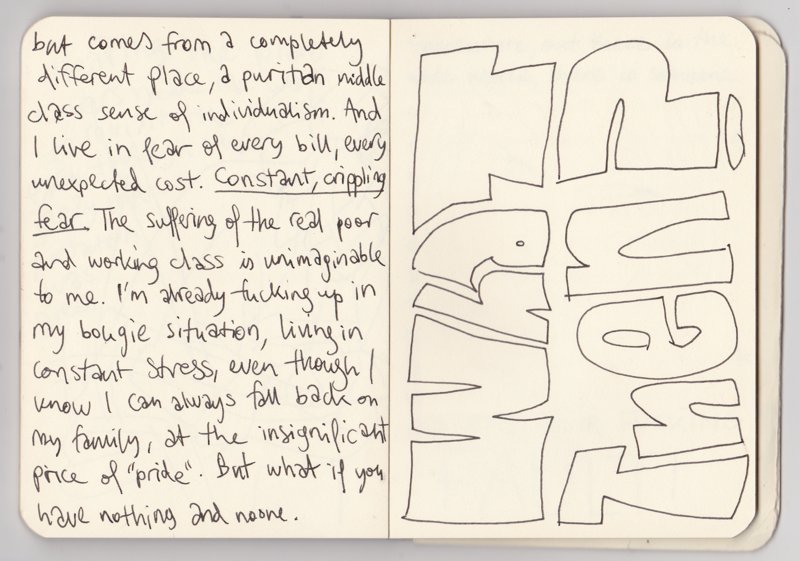 but comes from a completely
different place, a puritan middle
class sense of individualism. And
I live in fear of every bill, every
unexpected cost. Constant, crippling
fear. The suffering of the real poor
and working class is unimaginable
to me. I'm already fucking up in
my bougie situation, living in
constant stress, even though I
know I can always fall back on
my family, at the insignificant
price of "pride". But what if you
have nothing and noone.
What
Then?